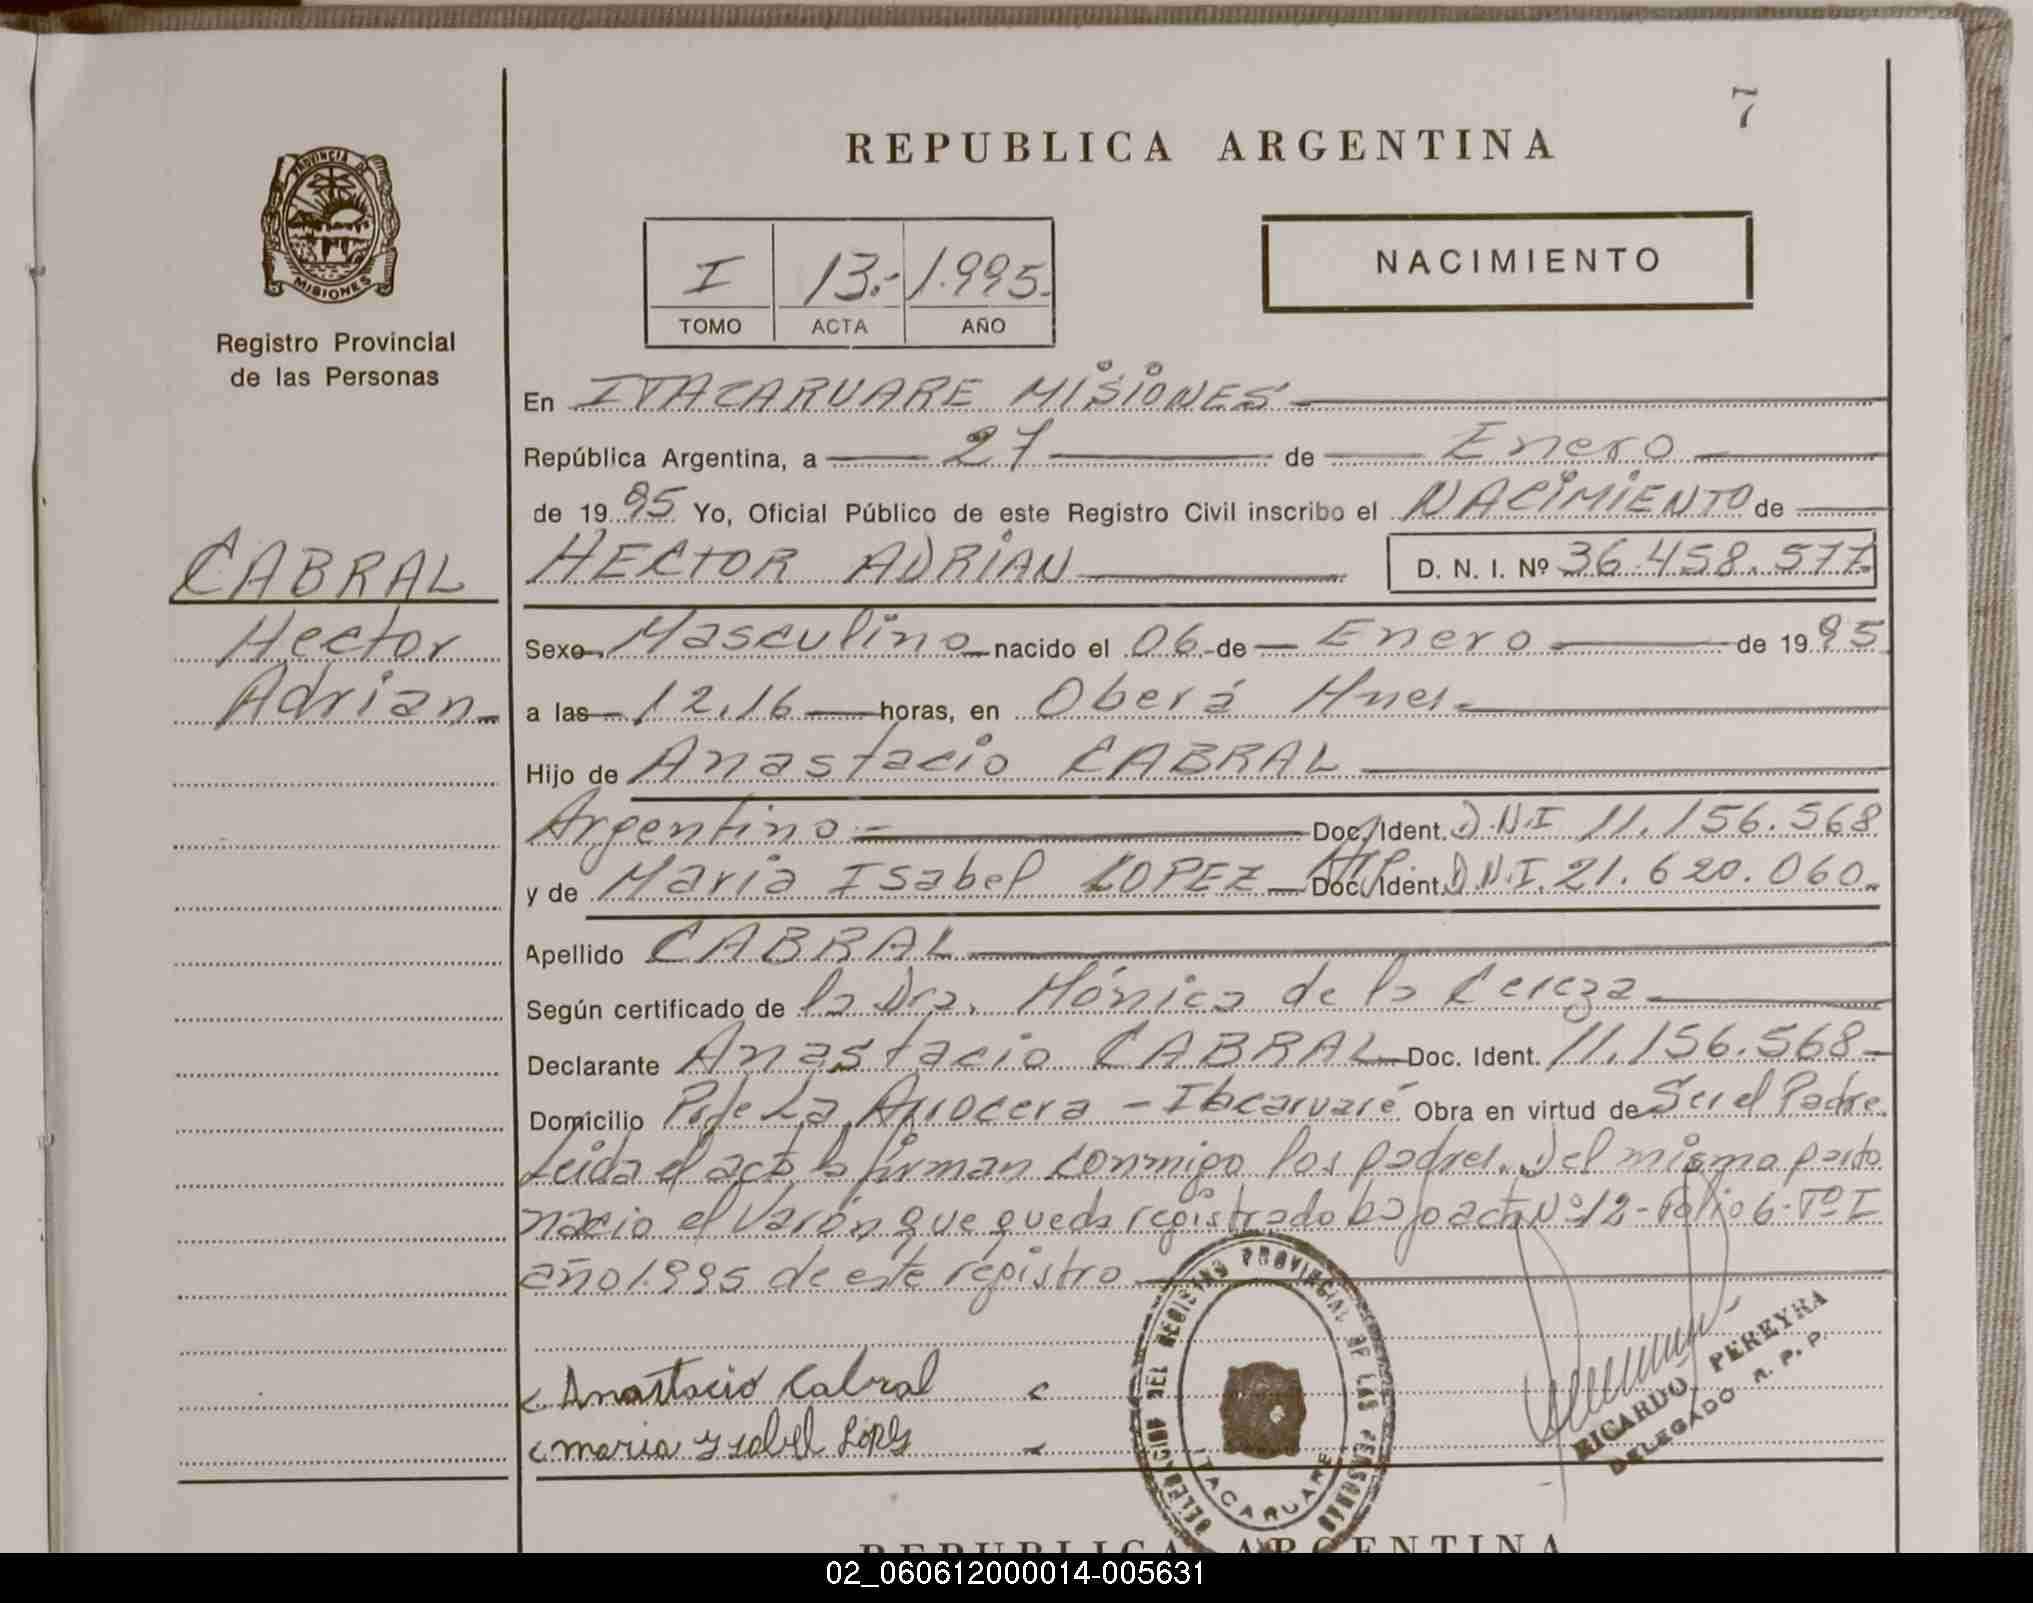 7
REPUBLICA ARGENTINA
PROVINCIA DE
MISIONES
Registro Provincial
de las Personas
I 13.- 1.995.
TOMO ACTA AÑO
NACIMIENTO
En ITACARUARE MISIONES
República Argentina, a 27 de Enero
de 1995 Yo, Oficial Público de este Registro Civil inscribo el NACIMIENTO de
CABRAL
Hector
Adrian
HECTOR ADRIAN D. N. I. Nº 36.458.577
Sexo Masculino nacido el 06 de Enero de 1995
a las 12,16 horas, en Oberá Mnes.
Hijo de Anastacio CABRAL
Argentino Doc. Ident. D.N.I 11.156.568
y de Maria Isabel LOPEZ Doc. Ident. D.N.I. 21.620.060.
Apellido CABRAL
Según certificado de la Dra. Mónica de la Cereza
Declarante Anastacio CABRAL Doc. Ident. 11.156.568
Domicilio La Arrocera - Itacaruaré Obra en virtud de Ser el Padre.
Leida el acta la firman conmigo los padres. Del mismo parto
nacio el Varón que queda registrado bajo acta Nº 12 - Folio 6 - Tº I
año 1.995 de este registro
Anastacio Cabral
maria ysabel Lopez
DELEGACION DEL REGISTRO PROVINCIAL DE LAS PERSONAS
ITACARUARE
RICARDO PEREYRA
DELEGADO R. P. P.
REPUBLICA ARGENTINA
02_060612000014-005631